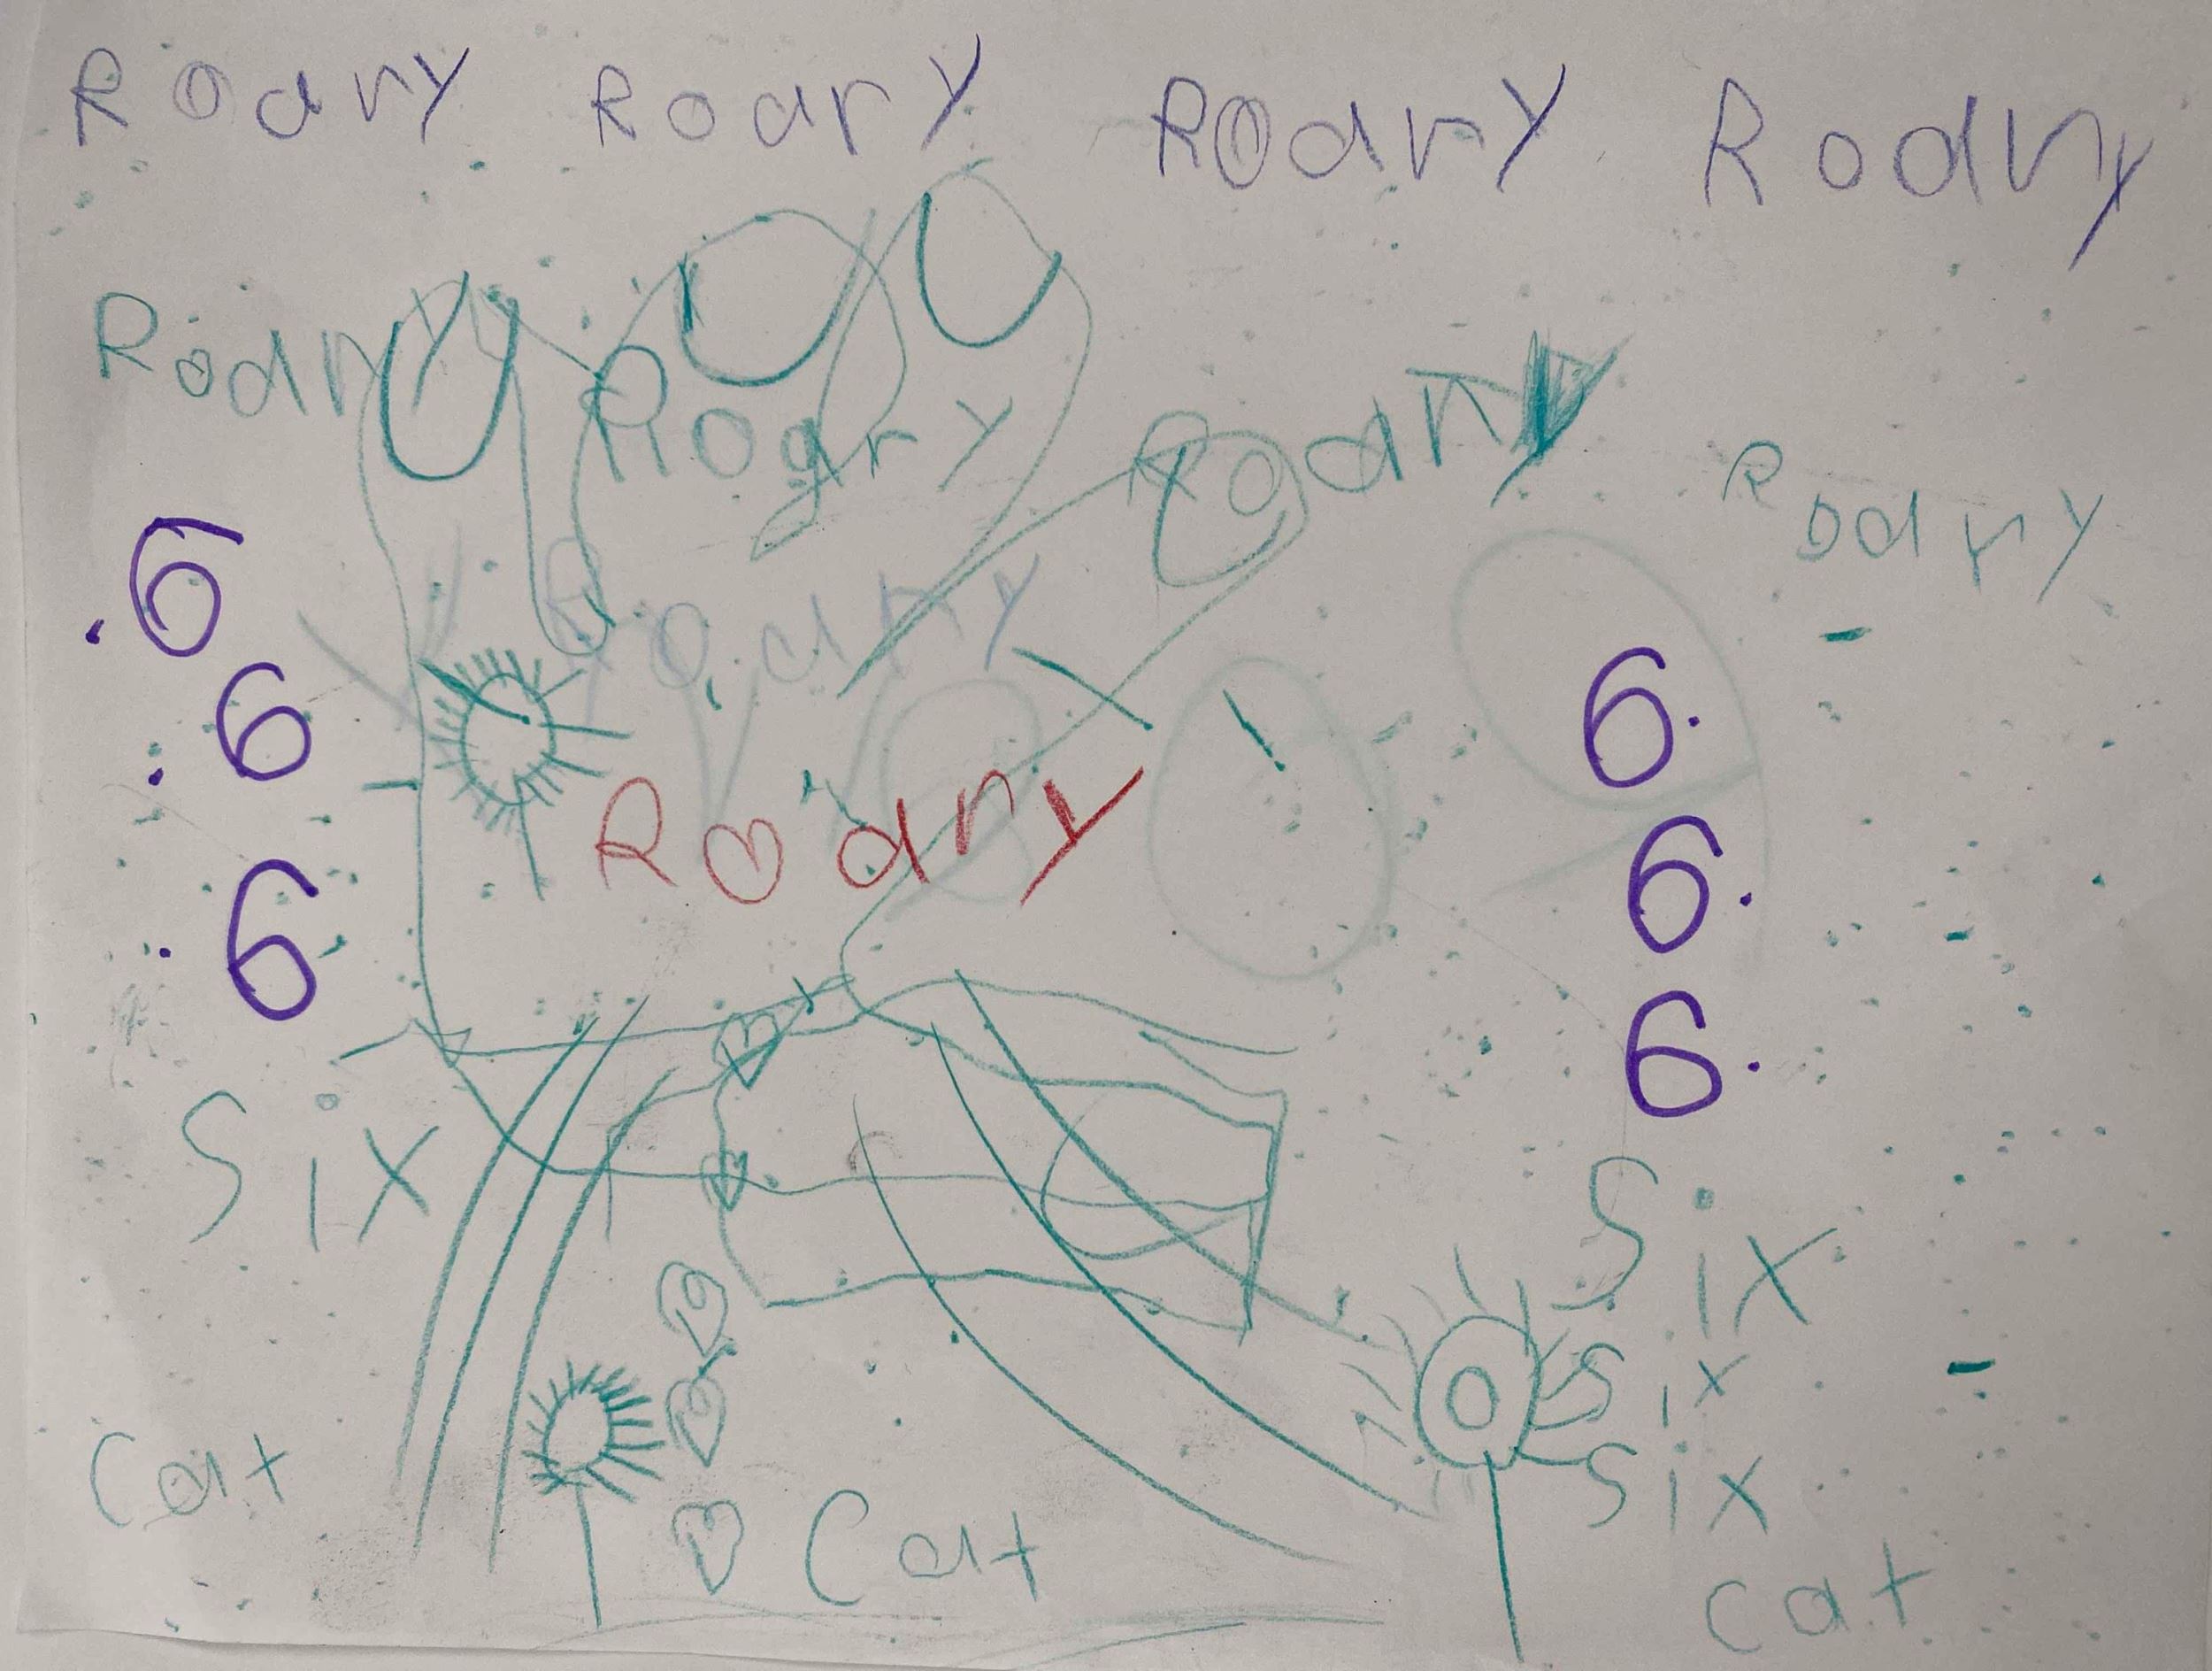 Roary Roary Roary Roary
Roary Roary Roary Roary
Roary
6 6
6 6
6 6
Roary
Six Six
Six
Six
Cat Cat Cat